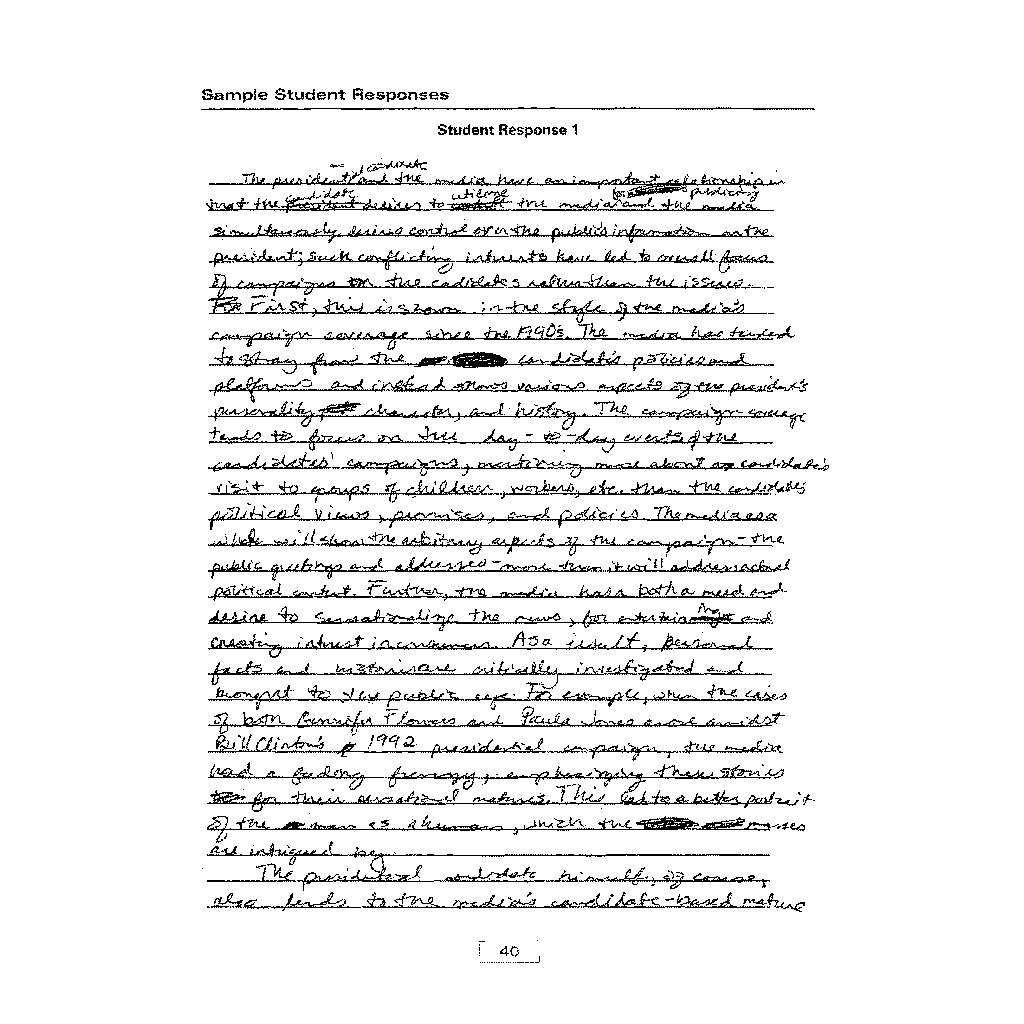 Sample Student Responses
Student Response 1
The presidential candidate and the media have an important relationship in
that the candidate desires to utilize the media and the media
simultaneously desires control over the public's information on the
president; such conflicting interests have led to overall focus
of campaigns on the candidates rather than the issues.
First, this is shown in the style of the media's
campaign coverage since the 1990's. The media has tended
to stray from the candidate's policies and
platforms and instead shows various aspects of the president's
personality, character, and history. The campaign coverage
tends to focus on the day-to-day events of the
candidates' campaigns, mentioning more about a candidate's
visit to groups of children, workers, etc. than the candidate's
political views, promises, and policies. The media as a
whole will show the arbitrary aspects of the campaign - the
public greetings and addresses - more than it will address actual
political content. Further, the media has both a need and
desire to sensationalize the news, for entertaining and
creating interest in consumers. As a result, personal
facts and histories are critically investigated and
brought to the public eye. For example, when the cases
of both Gennifer Flowers and Paula Jones arose amidst
Bill Clinton's 1992 presidential campaign, the media
had a feeding frenzy, emphasizing these stories
for their sensational natures. This led to a better portrait
of the man as a human, which the masses
are intrigued by.
The presidential candidate himself, of course,
also lends to the media's candidate-based nature
40